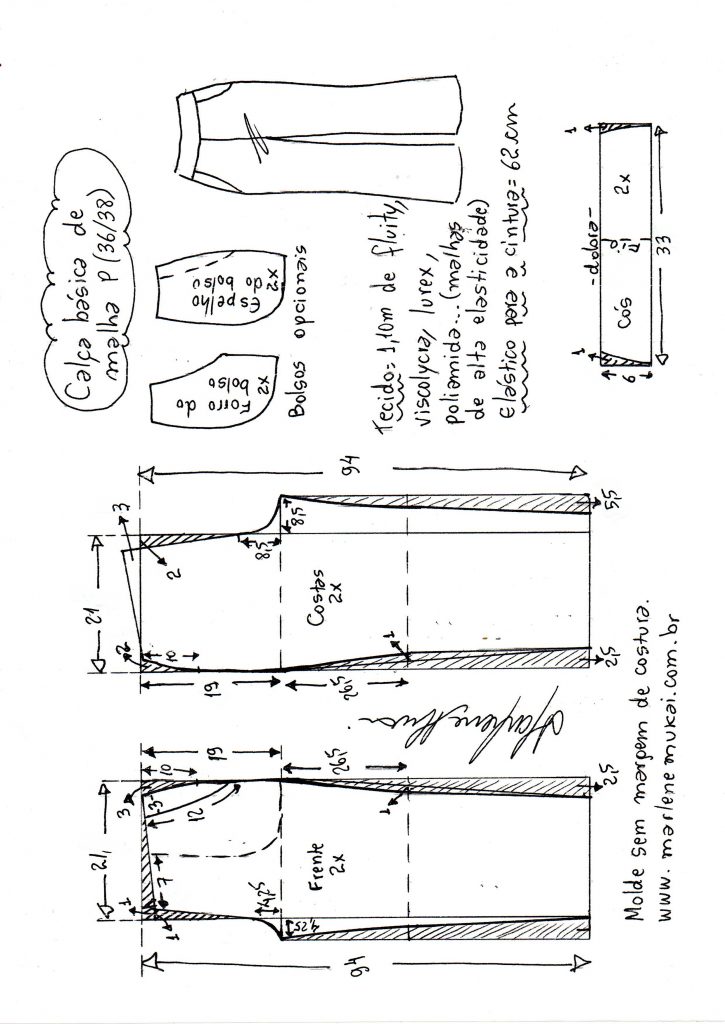 Calça básica de
malha P (36/38)
Espelho
do bolso
2x
Forro do
bolso
2x
Bolsos opcionais
Tecido= 1,10m de fluity,
viscolycra, lurex,
poliamida... (malhas
de alta elasticidade)
Elástico para a cintura= 62cm
1
-dobra-
Cós
2x
1
6
33
94
3
2
8,5
8,5
21
Costas
2x
2
10
19
26,5
1
5,5
2,5
19
10
26,5
3
3
12
21
7
Frente
2x
1
1
4,25
4,25
1
2,5
94
Molde sem margem de costura.
www.marlenemukai.com.br